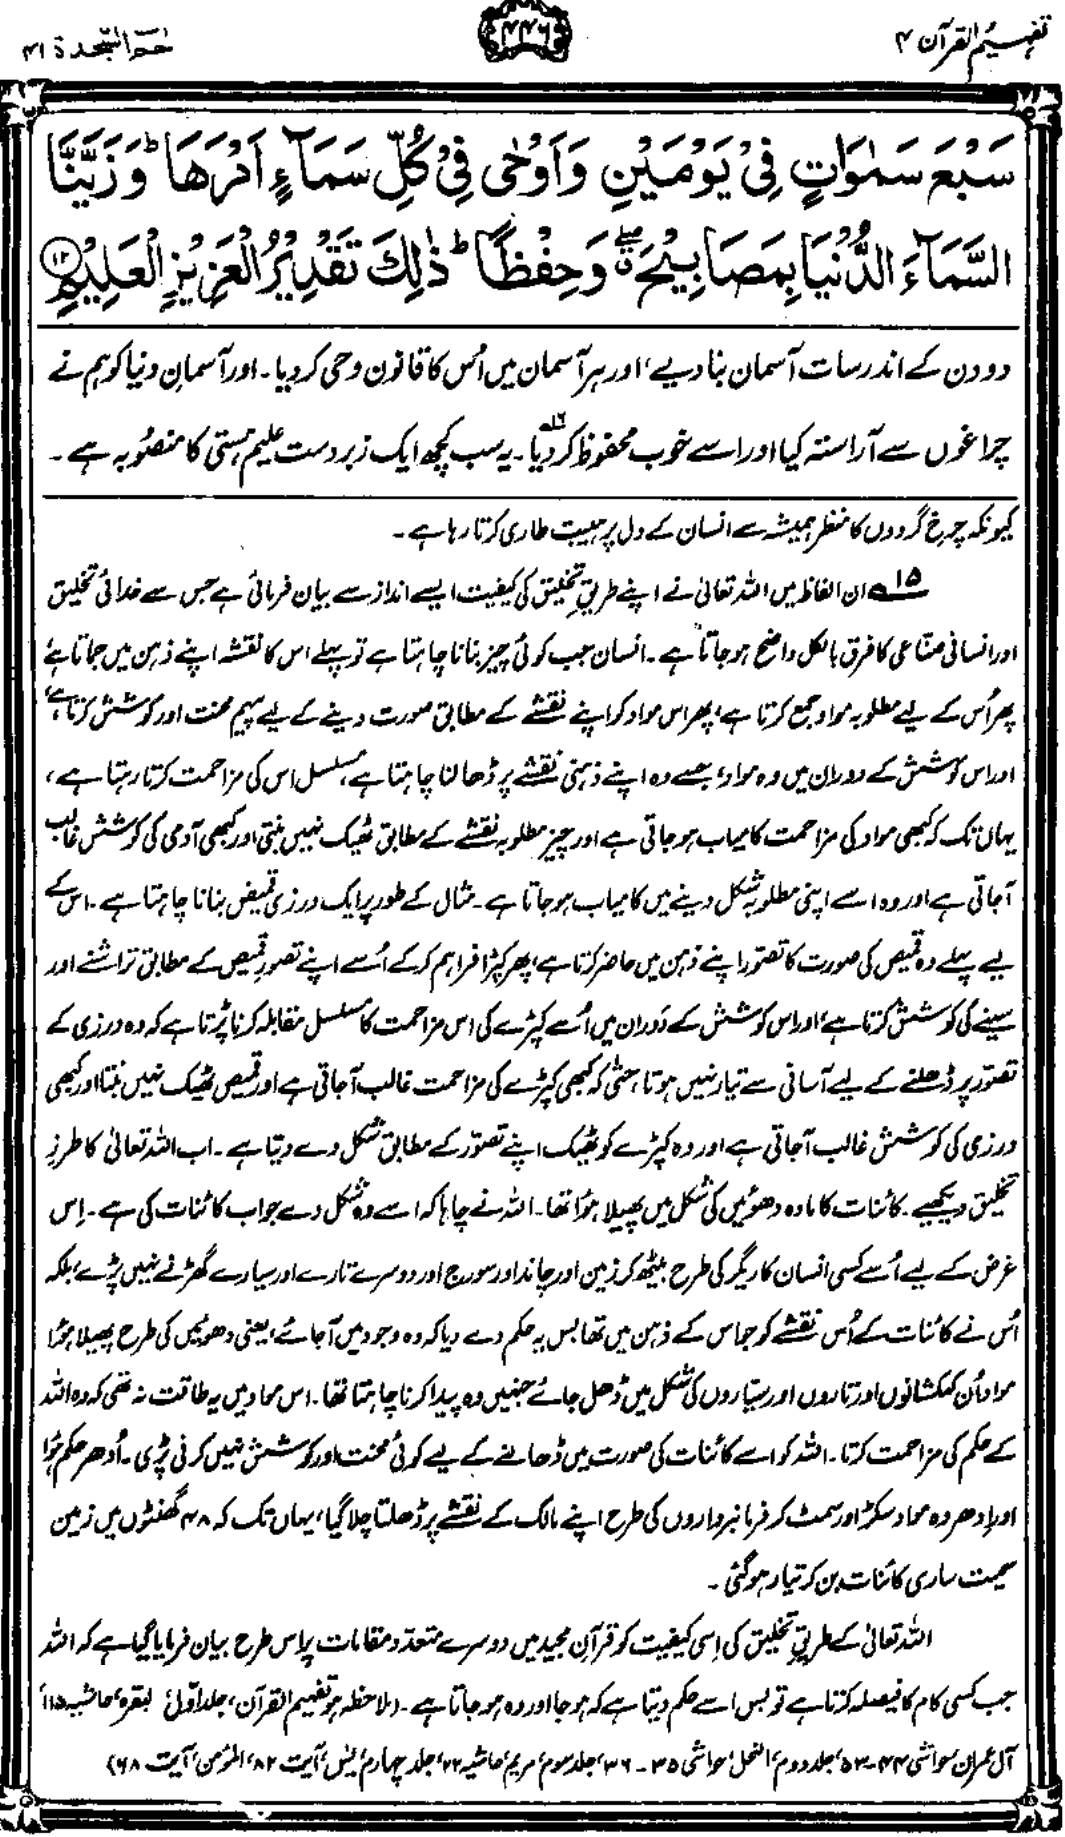 تفہیم القرآن ۴
۴۴۶
حٰمٓ السّجدۃ ۴۱
سَبْعَ سَمٰوَاتٍ فِیْ یَوْمَیْنِ وَاَوْحٰی فِیْ کُلِّ سَمَآءٍ اَمْرَھَا ؕ وَزَیَّنَّا
السَّمَآءَ الدُّنْیَا بِمَصَابِیْحَ ۖ وَحِفْظًا ؕ ذٰلِکَ تَقْدِیْرُ الْعَزِیْزِ الْعَلِیْمِ ﴿۱۲﴾
دو دن کے اندر سات آسمان بنا دیے، اور ہر آسمان میں اُس کا قانون وحی کر دیا۔ اور آسمانِ دنیا کو ہم نے
چراغوں سے آراستہ کیا اور اسے خوب محفوظ کر دیا۱۶۔ یہ سب کچھ ایک زبردست علیم ہستی کا منصُوبہ ہے۔
کیونکہ چرخِ گردوں کا منظر ہمیشہ سے انسان کے دل پر ہیبت طاری کرتا رہا ہے۔
۱۵ ان الفاظ میں اللہ تعالیٰ نے اپنے طریقِ تخلیق کی کیفیت ایسے انداز سے بیان فرمائی ہے جس سے خدائی تخلیق
اور انسانی صنّاعی کا فرق بالکل واضح ہو جاتا ہے۔ انسان جب کوئی چیز بنانا چاہتا ہے تو پہلے اس کا نقشہ اپنے ذہن میں جماتا ہے
پھر اُس کے لیے مطلوبہ مواد جمع کرتا ہے، پھر اس مواد کو اپنے نقشے کے مطابق صورت دینے کے لیے پیہم محنت اور کوشش کرتا ہے،
اور اس کوشش کے دوران میں وہ مواد، جسے وہ اپنے ذہنی نقشے پر ڈھالنا چاہتا ہے، مسلسل اس کی مزاحمت کرتا رہتا ہے،
یہاں تک کہ کبھی مواد کی مزاحمت کامیاب ہو جاتی ہے اور چیز مطلوبہ نقشے کے مطابق ٹھیک نہیں بنتی اور کبھی آدمی کی کوشش غالب
آجاتی ہے اور وہ اسے اپنی مطلوبہ شکل دینے میں کامیاب ہو جاتا ہے۔ مثال کے طور پر ایک درزی قمیض بنانا چاہتا ہے۔ اس کے
لیے پہلے وہ قمیص کی صورت کا تصوّر اپنے ذہن میں حاضر کرتا ہے، پھر کپڑا فراہم کر کے اُسے اپنے تصوّرِ قمیص کے مطابق تراشنے اور
سینے کی کوشش کرتا ہے، اور اس کوشش کے دَوران میں اُسے کپڑے کی اس مزاحمت کا مسلسل مقابلہ کرنا پڑتا ہے کہ وہ درزی کے
تصوّر پر ڈھلنے کے لیے آسانی سے تیار نہیں ہوتا، حتیٰ کہ کبھی کپڑے کی مزاحمت غالب آجاتی ہے اور قمیص ٹھیک نہیں بنتا اور کبھی
درزی کی کوشش غالب آجاتی ہے اور وہ کپڑے کو ٹھیک اپنے تصوّر کے مطابق شکل دے دیتا ہے۔ اب اللہ تعالیٰ کا طرزِ
تخلیق دیکھیے۔ کائنات کا مادہ دھوئیں کی شکل میں پھیلا ہُوا تھا۔ اللہ نے چاہا کہ اسے وہ شکل دے جو اب کائنات کی ہے۔ اِس
غرض کے لیے اُسے کسی انسان کاریگر کی طرح بیٹھ کر زمین اور چاند اور سورج اور دوسرے تارے اور سیارے گھڑنے نہیں پڑے، بلکہ
اُس نے کائنات کے اُس نقشے کو جو اس کے ذہن میں تھا بس یہ حکم دے دیا کہ وہ وجود میں آجائے، یعنی دھوئیں کی طرح پھیلا ہُوا
مواد اُن کہکشانوں اور تاروں اور سیّاروں کی شکل میں ڈھل جائے جنہیں وہ پیدا کرنا چاہتا تھا۔ اس مواد میں یہ طاقت نہ تھی کہ وہ اللہ
کے حکم کی مزاحمت کرتا۔ اللہ کو اسے کائنات کی صورت میں ڈھالنے کے لیے کوئی محنت اور کوشش نہیں کرنی پڑی۔ اُدھر حکم ہُوا
اور اِدھر وہ مواد سکڑ اور سمٹ کر فرمانبرداروں کی طرح اپنے مالک کے نقشے پر ڈھلتا چلا گیا، یہاں تک کہ ۴۸ گھنٹوں میں زمین
سمیت ساری کائنات بن کر تیار ہو گئی۔
اللہ تعالیٰ کے طریقِ تخلیق کی اِسی کیفیت کو قرآن مجید میں دوسرے متعدّد مقامات پر اس طرح بیان فرمایا گیا ہے کہ اللہ
جب کسی کام کا فیصلہ کرتا ہے تو بس اسے حکم دیتا ہے کہ ہو جا اور وہ ہو جاتا ہے۔ (ملاحظہ ہو تفہیم القرآن، جلد اوّل، البقرہ، حاشیہ ۱۱۵،
آل عمران حواشی ۴۴-۵۳، جلد دوم، النحل، حواشی ۳۵-۳۶، جلد سوم، مریم، حاشیہ ۲۲، جلد چہارم، یٰس، آیت ۸۲، المؤمن، آیت ۶۸)